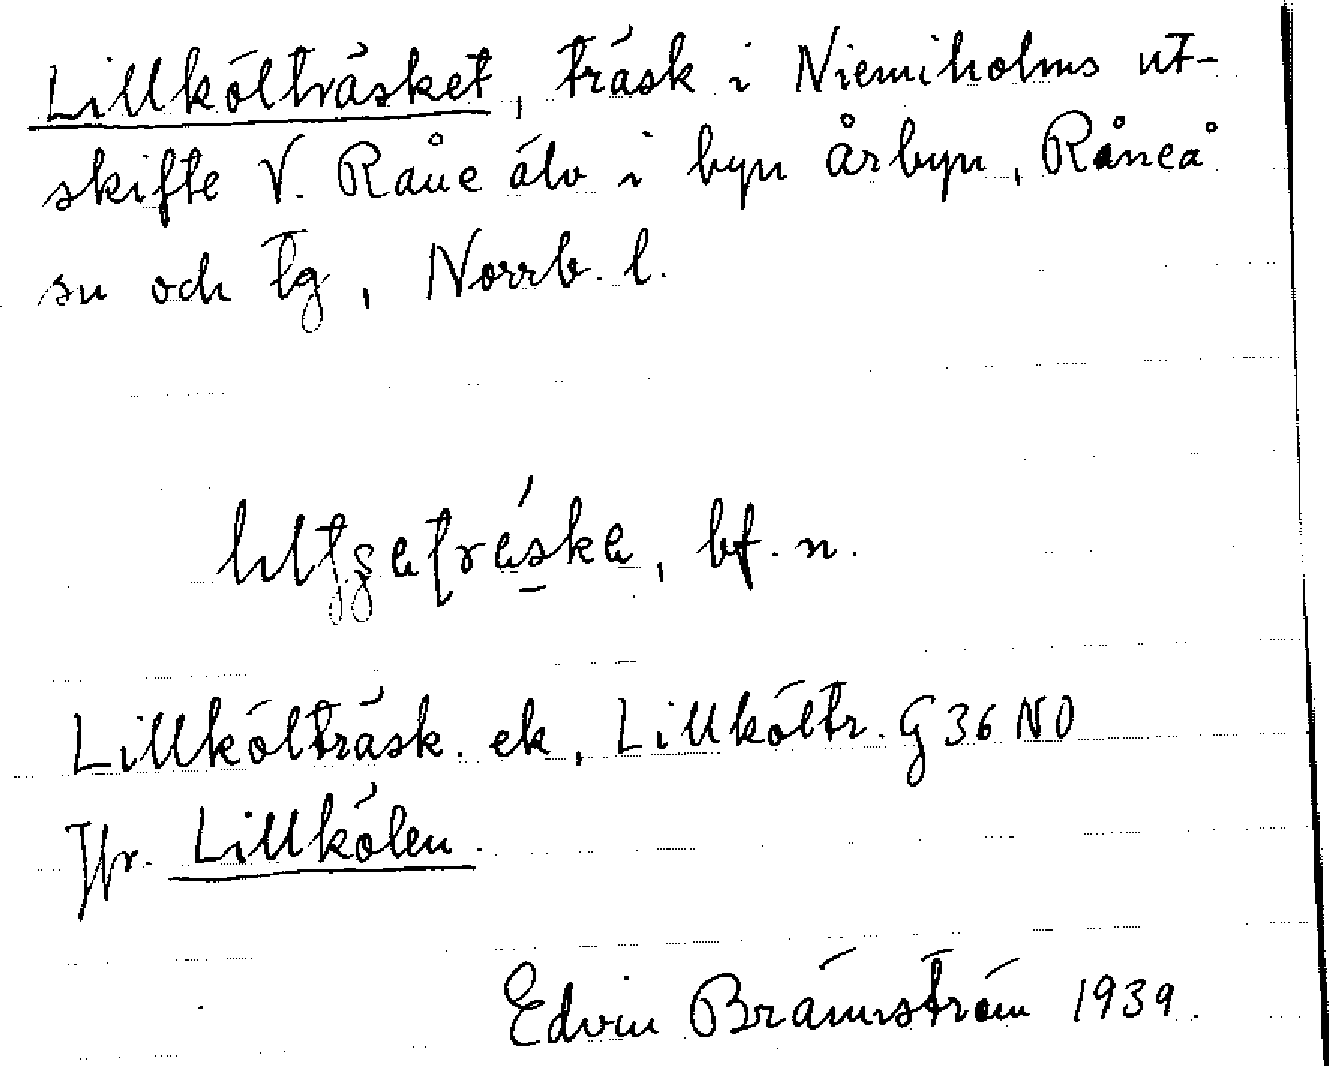 Lillkölträsket, träsk i Niemiholms ut-
skifte V. Råne älv i byn Årbyn, Råneå
sn och tg, Norrb. l.
bf. n.
Lillkölträsk. ek, Lillköltr. G 36 NO
Jfr. Lillkölen.
Edvin Brännström 1939.